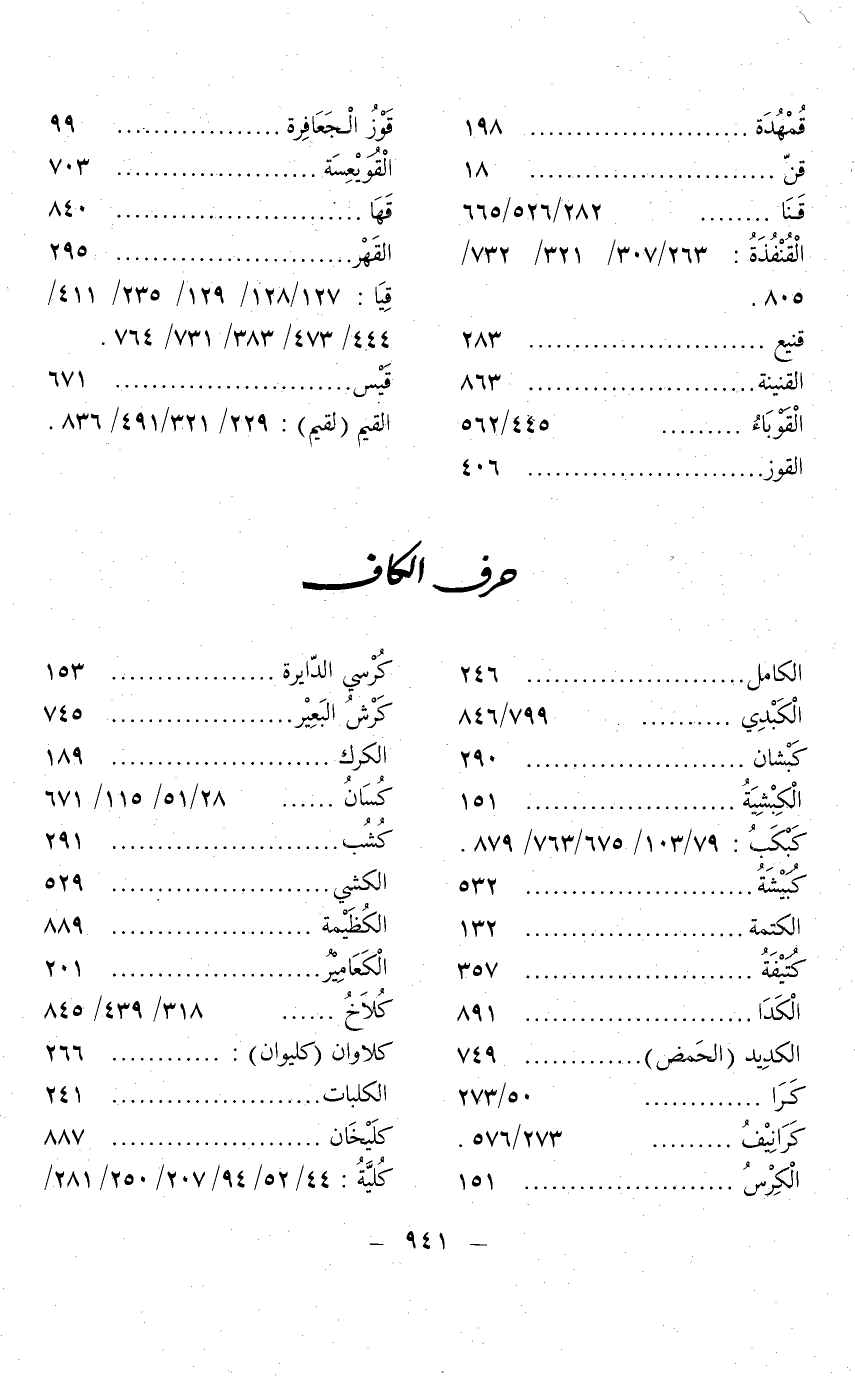 قُمْهُدَة ........................ ١٩٨
قنّ ........................... ١٨
قَنَا ........ ٢٨٢/٥٢٦/٦٦٥
الْقُنْفُذَةُ : ٢٦٣/٣٠٧/ ٣٢١/ ٧٣٢/
٨٠٥ .
قنيع .......................... ٢٨٣
القنينة ......................... ٨٦٣
الْقَوْبَاءُ ......... ٤٤٥/٥٦٢
القوز .......................... ٤٠٦
قَوْزُ الْجَعَافِرة .................. ٩٩
الْقُوَيْعِسَة ...................... ٧٠٣
قَهَا ........................... ٨٤٠
القَهْر .......................... ٢٩٥
قِيَا : ١٢٧/١٢٨/ ١٢٩/ ٢٣٥/ ٤١١/
٤٤٤/ ٤٧٣/ ٣٨٣/ ٧٣١/ ٧٦٤ .
قَيْس .......................... ٦٧١
القيم (لقيم) : ٢٢٩/ ٣٢١/٤٩١/ ٨٣٦ .
حرف الكاف
الكامل ........................ ٢٤٦
الْكَبْدِي .......... ٧٩٩/٨٤٦
كَبْشان ........................ ٢٩٠
الْكِبْشِيَةُ ....................... ١٥١
كَبْكَبُ : ٧٩/١٠٣/ ٦٧٥/٧٦٣/ ٨٧٩ .
كُبَيْشَةُ ......................... ٥٣٢
الكتمة ........................ ١٣٢
كُتَيْفَةُ ......................... ٣٥٧
الْكَدَا ......................... ٨٩١
الكديد (الحَمض) ............. ٧٤٩
كَرَا ............. ٥٠/٢٧٣
كَرَانِيْفُ ......... ٢٧٣/٥٧٦ .
الْكِرْسُ ....................... ١٥١
كُرْسي الدّايرة .................. ١٥٣
كَرْشُ البَعِيْر .................... ٧٤٥
الكرك ........................ ١٨٩
كُسَانُ ...... ٢٨/٥١/ ١١٥/ ٦٧١
كُشُب ......................... ٢٩١
الكشي ........................ ٥٢٩
الكُظَيْمة ...................... ٨٨٩
الْكَعَامِيْرُ ....................... ٢٠١
كُلاَخُ ...... ٣١٨/ ٤٣٩/ ٨٤٥
كلاوان (كليوان) : ............ ٢٦٦
الكلبات ....................... ٢٤١
كلَيْخَان ....................... ٨٨٧
كُلَيَّةُ : ٤٤/ ٥٢/ ٩٤/ ٢٠٧/ ٢٥٠/ ٢٨١/
– ٩٤١ –